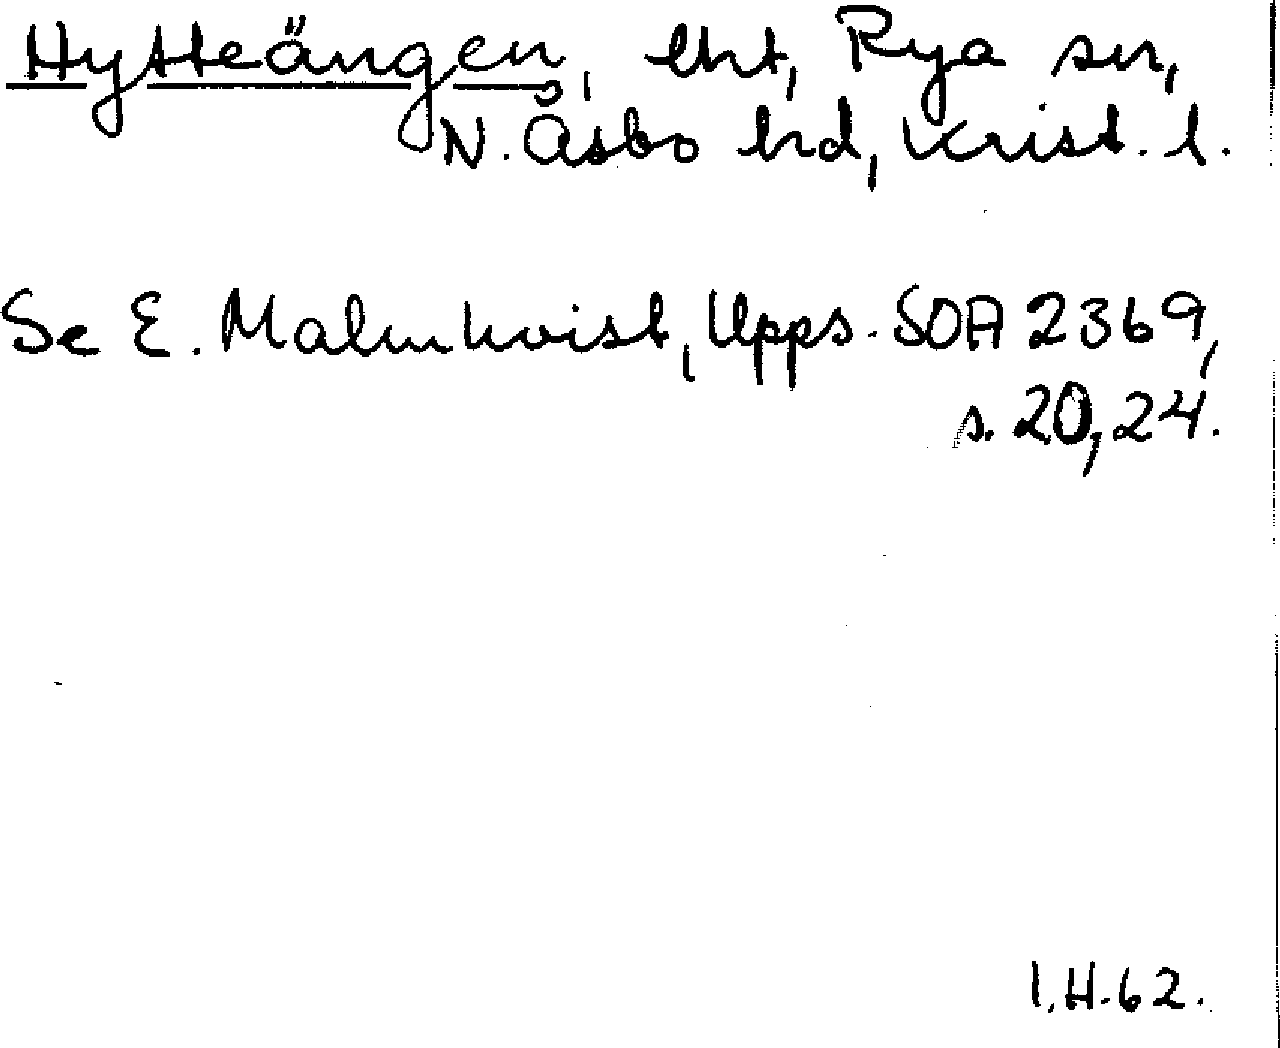 Hytteängen, lht, Rya sn,
N. Åsbo hd, Krist. l.
Se E. Malmkvist, Upps. SOA 2369,
s. 20, 24.
I.H. 62.